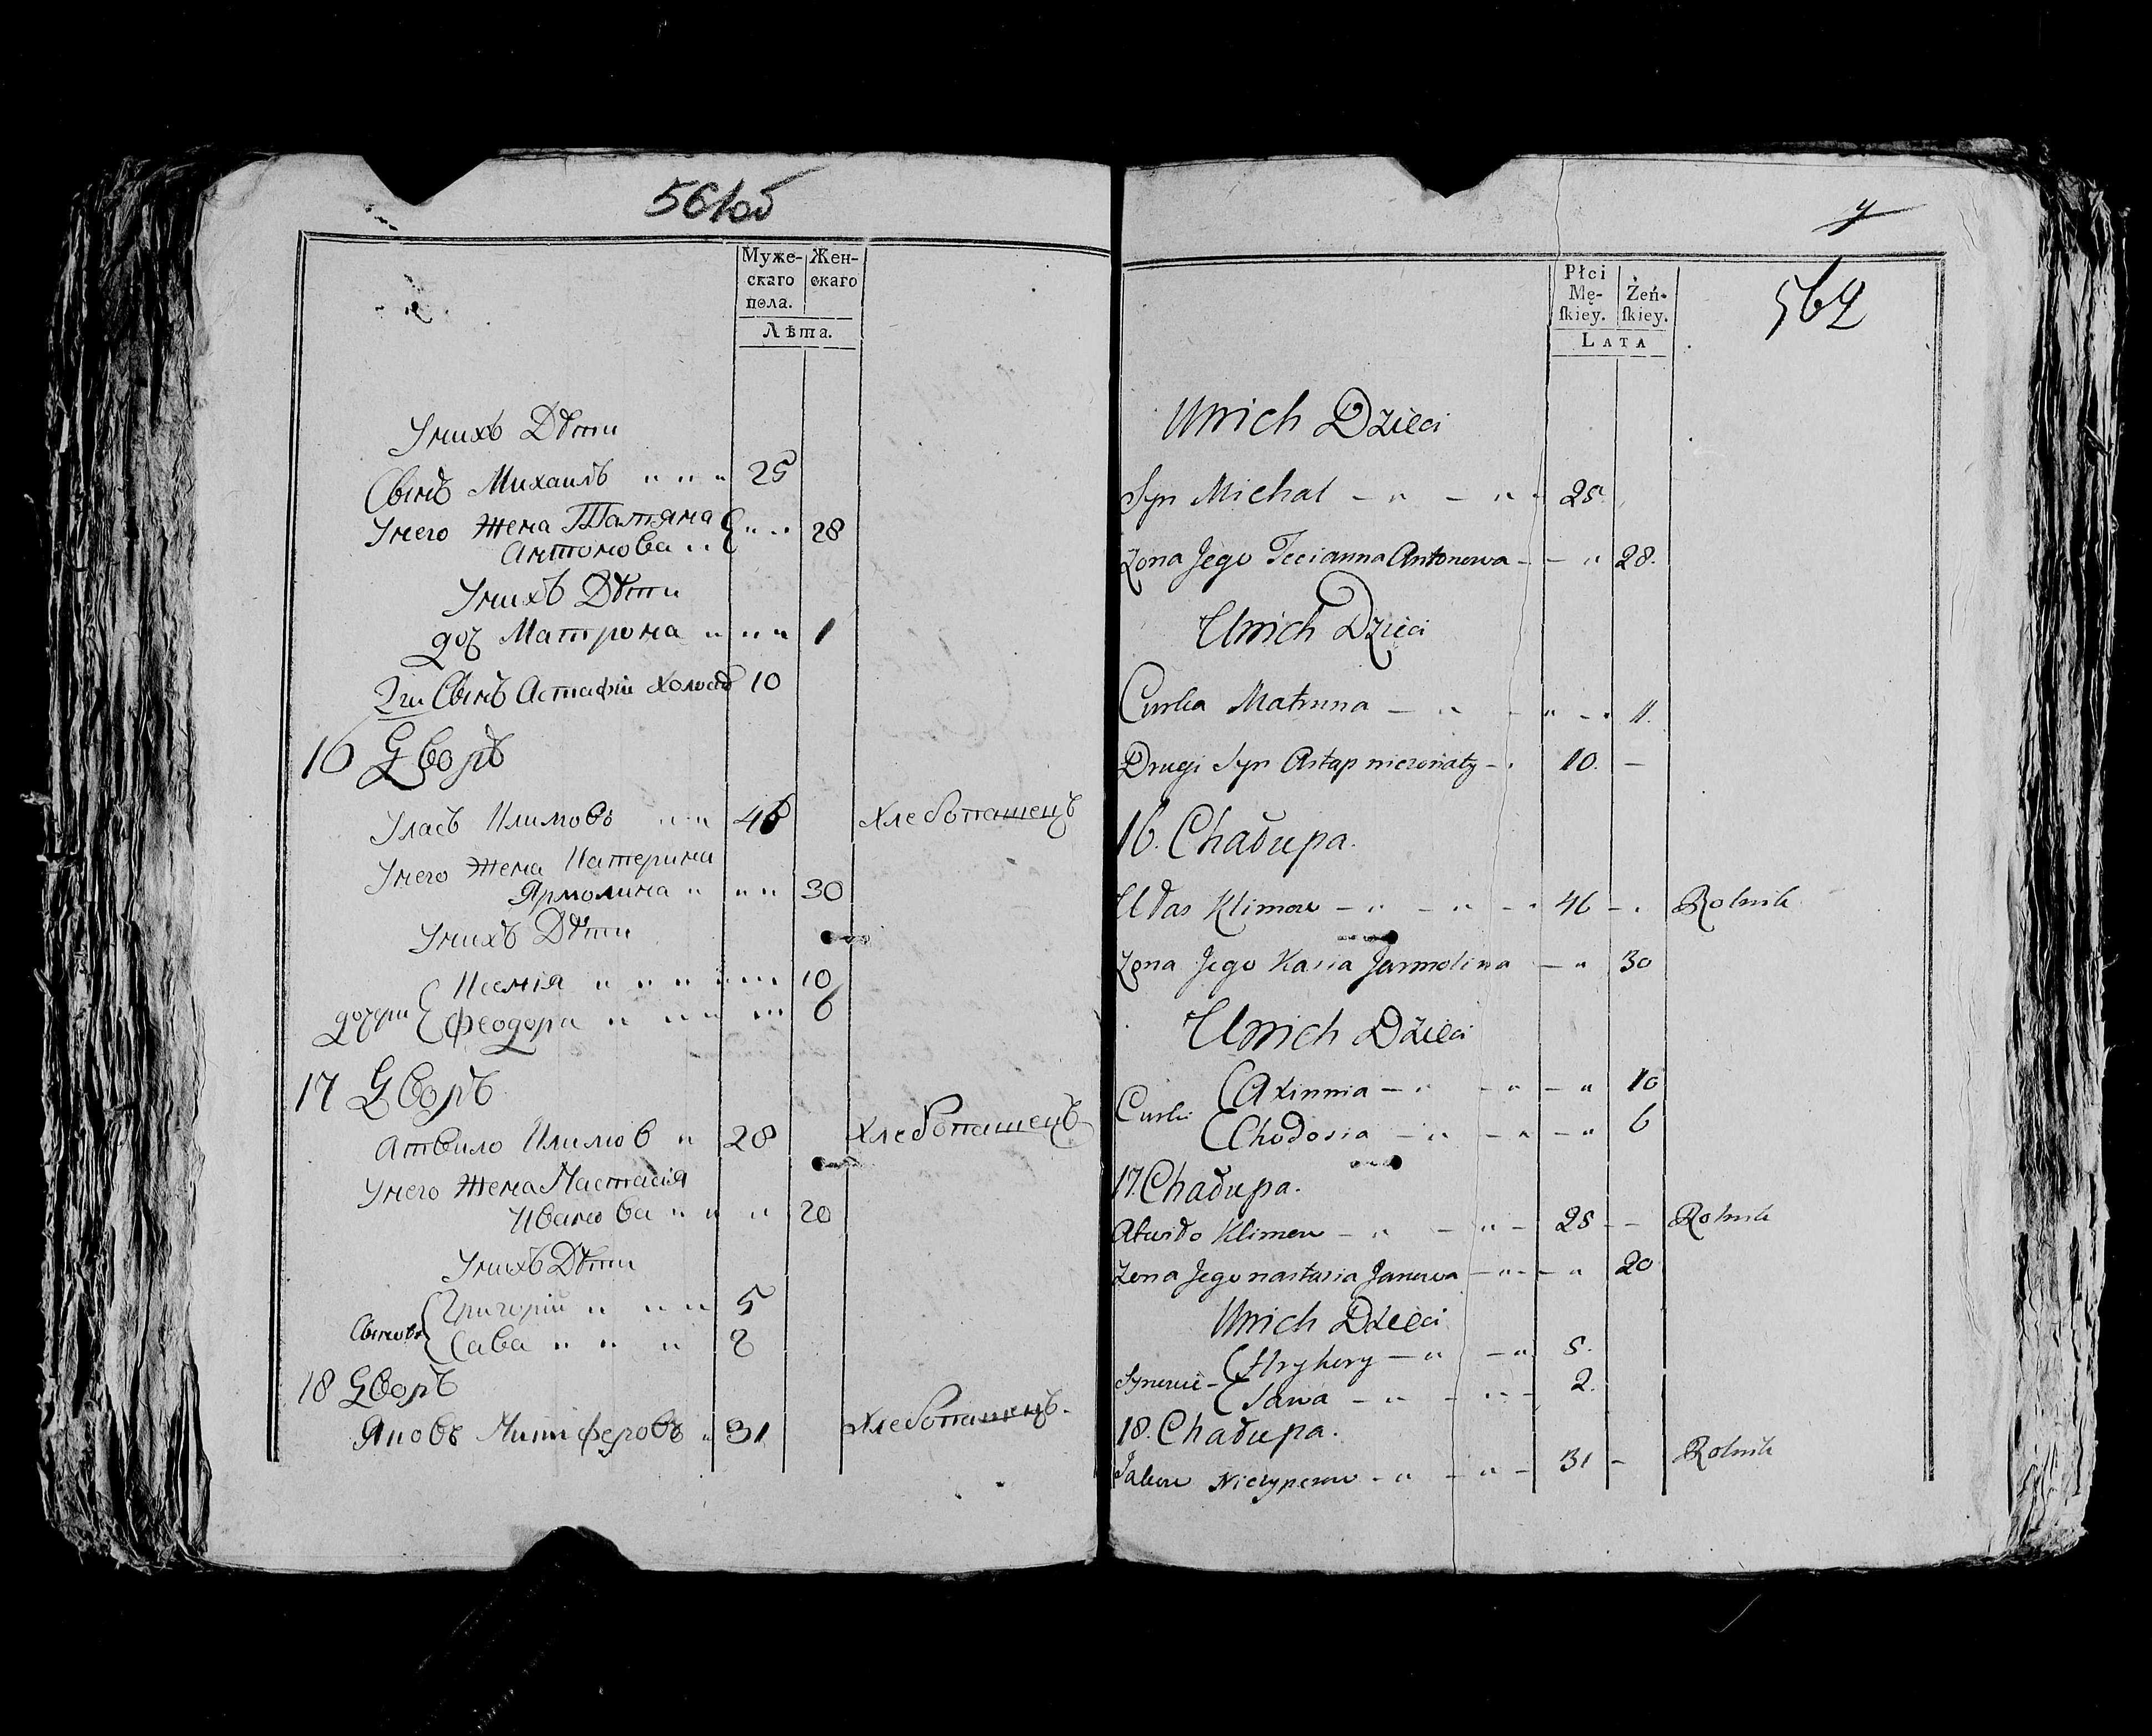 561об
Муже-
скаго
пола.
Жен-
скаго
Лѣта.
Унихъ Дѣти
Сынъ Михаилъ 25
Унего Жена Татяна
Антонова 28
Унихъ Дѣти
доч Матрона 1
2гй Сынъ Астафій холостъ 10
16 Дворъ
Уласъ Климовъ 46 Хлебопашецъ
Унего Жена Катерина
Ярмолина 30
Унихъ Дѣти
дочери Ксенія 10
Феодора 6
17 Дворъ
Атвило Климов 28 Хлебопашецъ
Унего Жена Настасія
Иванова 20
Унихъ Дѣти
Сыновя Григорій 5
Сава 2
18 Дворъ
Яковъ Ничиферовъ 31 Хлебопашецъ.
562
Płci
Mę-
ſkiey.
Żeń-
ſkiey.
LATA
Unich Dzieci
Syn Michał 25.
Zona Jego Tecianna Antonowa 28.
Unich Dzieci
Curka Matruna 11.
Drugi Syn Astap niezonaty 10.
16. Chałupa.
Ułas Klimow 46 Rolnik
Zona Jego Kasia Jarmolina 30
Unich Dzieci
Curki Axinnia 10
Chodosia 6
17. Chałupa.
Atwiło Klimow 28 Rolnik
Zona Jego nastasia Janowa 20
Unich Dzieci
Synowie Hryhory 5.
Sawa 2.
18. Chałupa.
Jakow Niczyperow 31 Rolnik